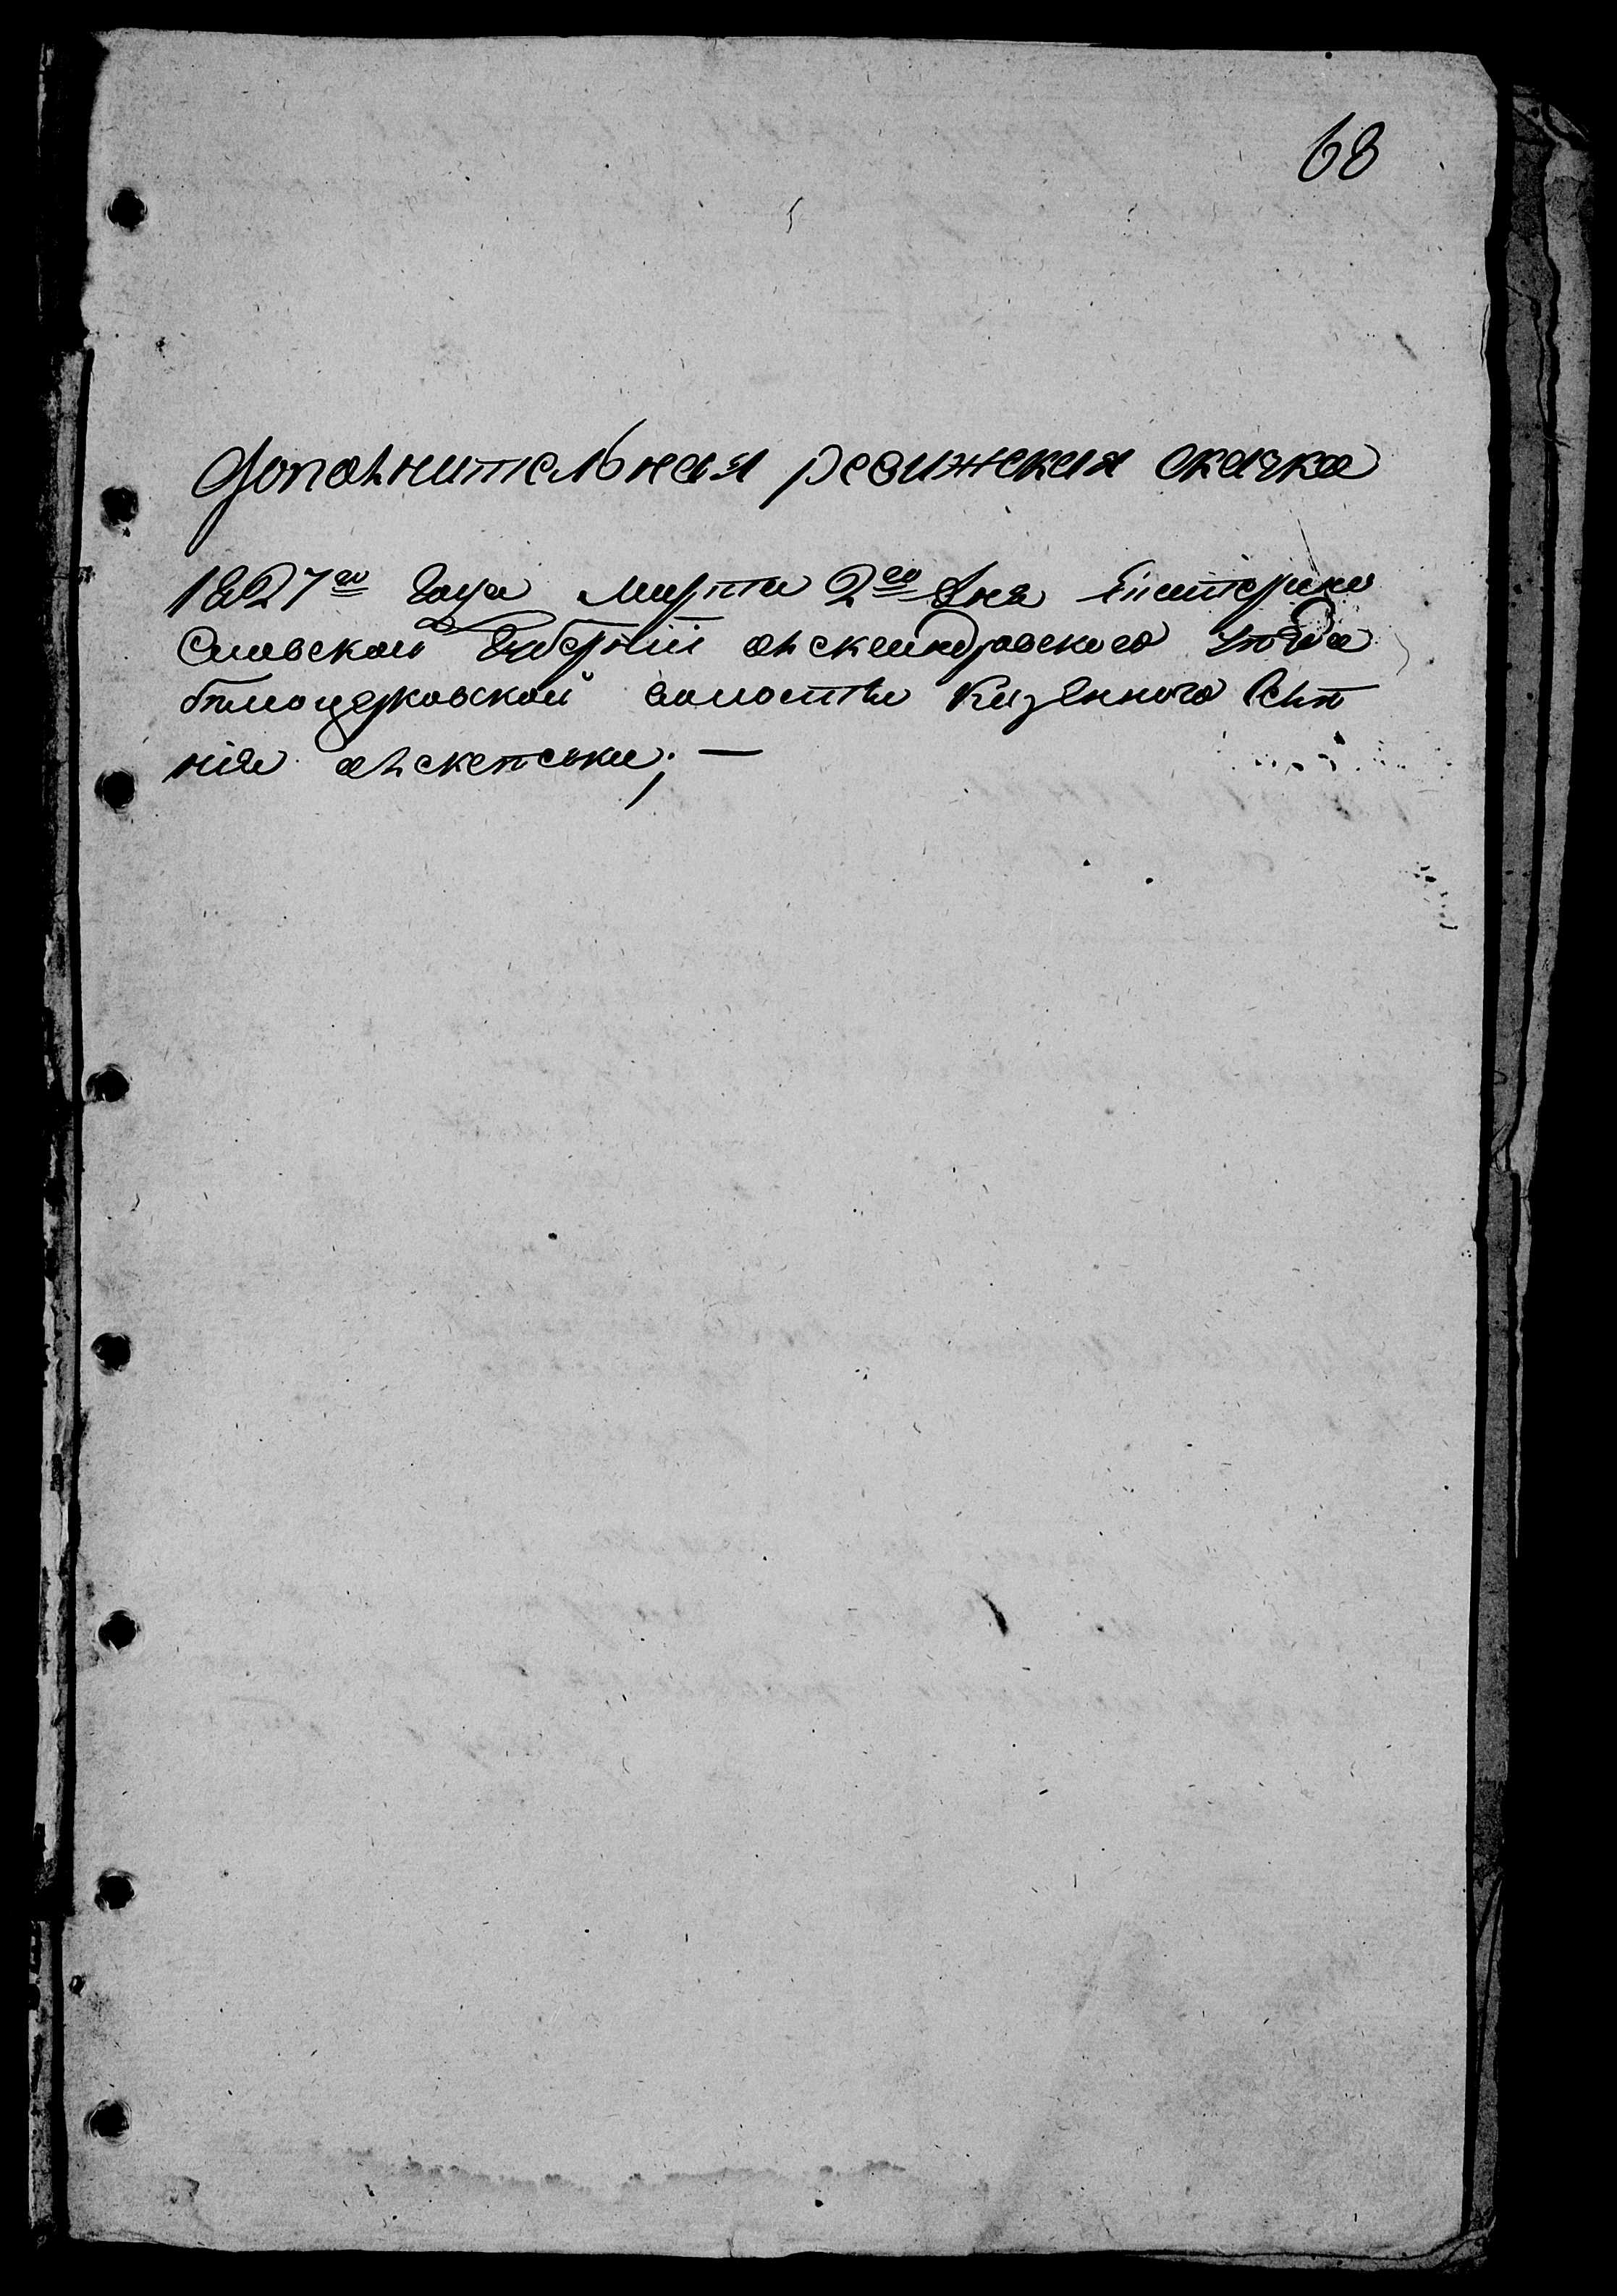 68
Дополнительная ревижская сказка
1827го года марта 2го дня Екатерино
Славской Губернии александровского уезда
белоцерковской волости Казенного Селе
ния алексеевки; —